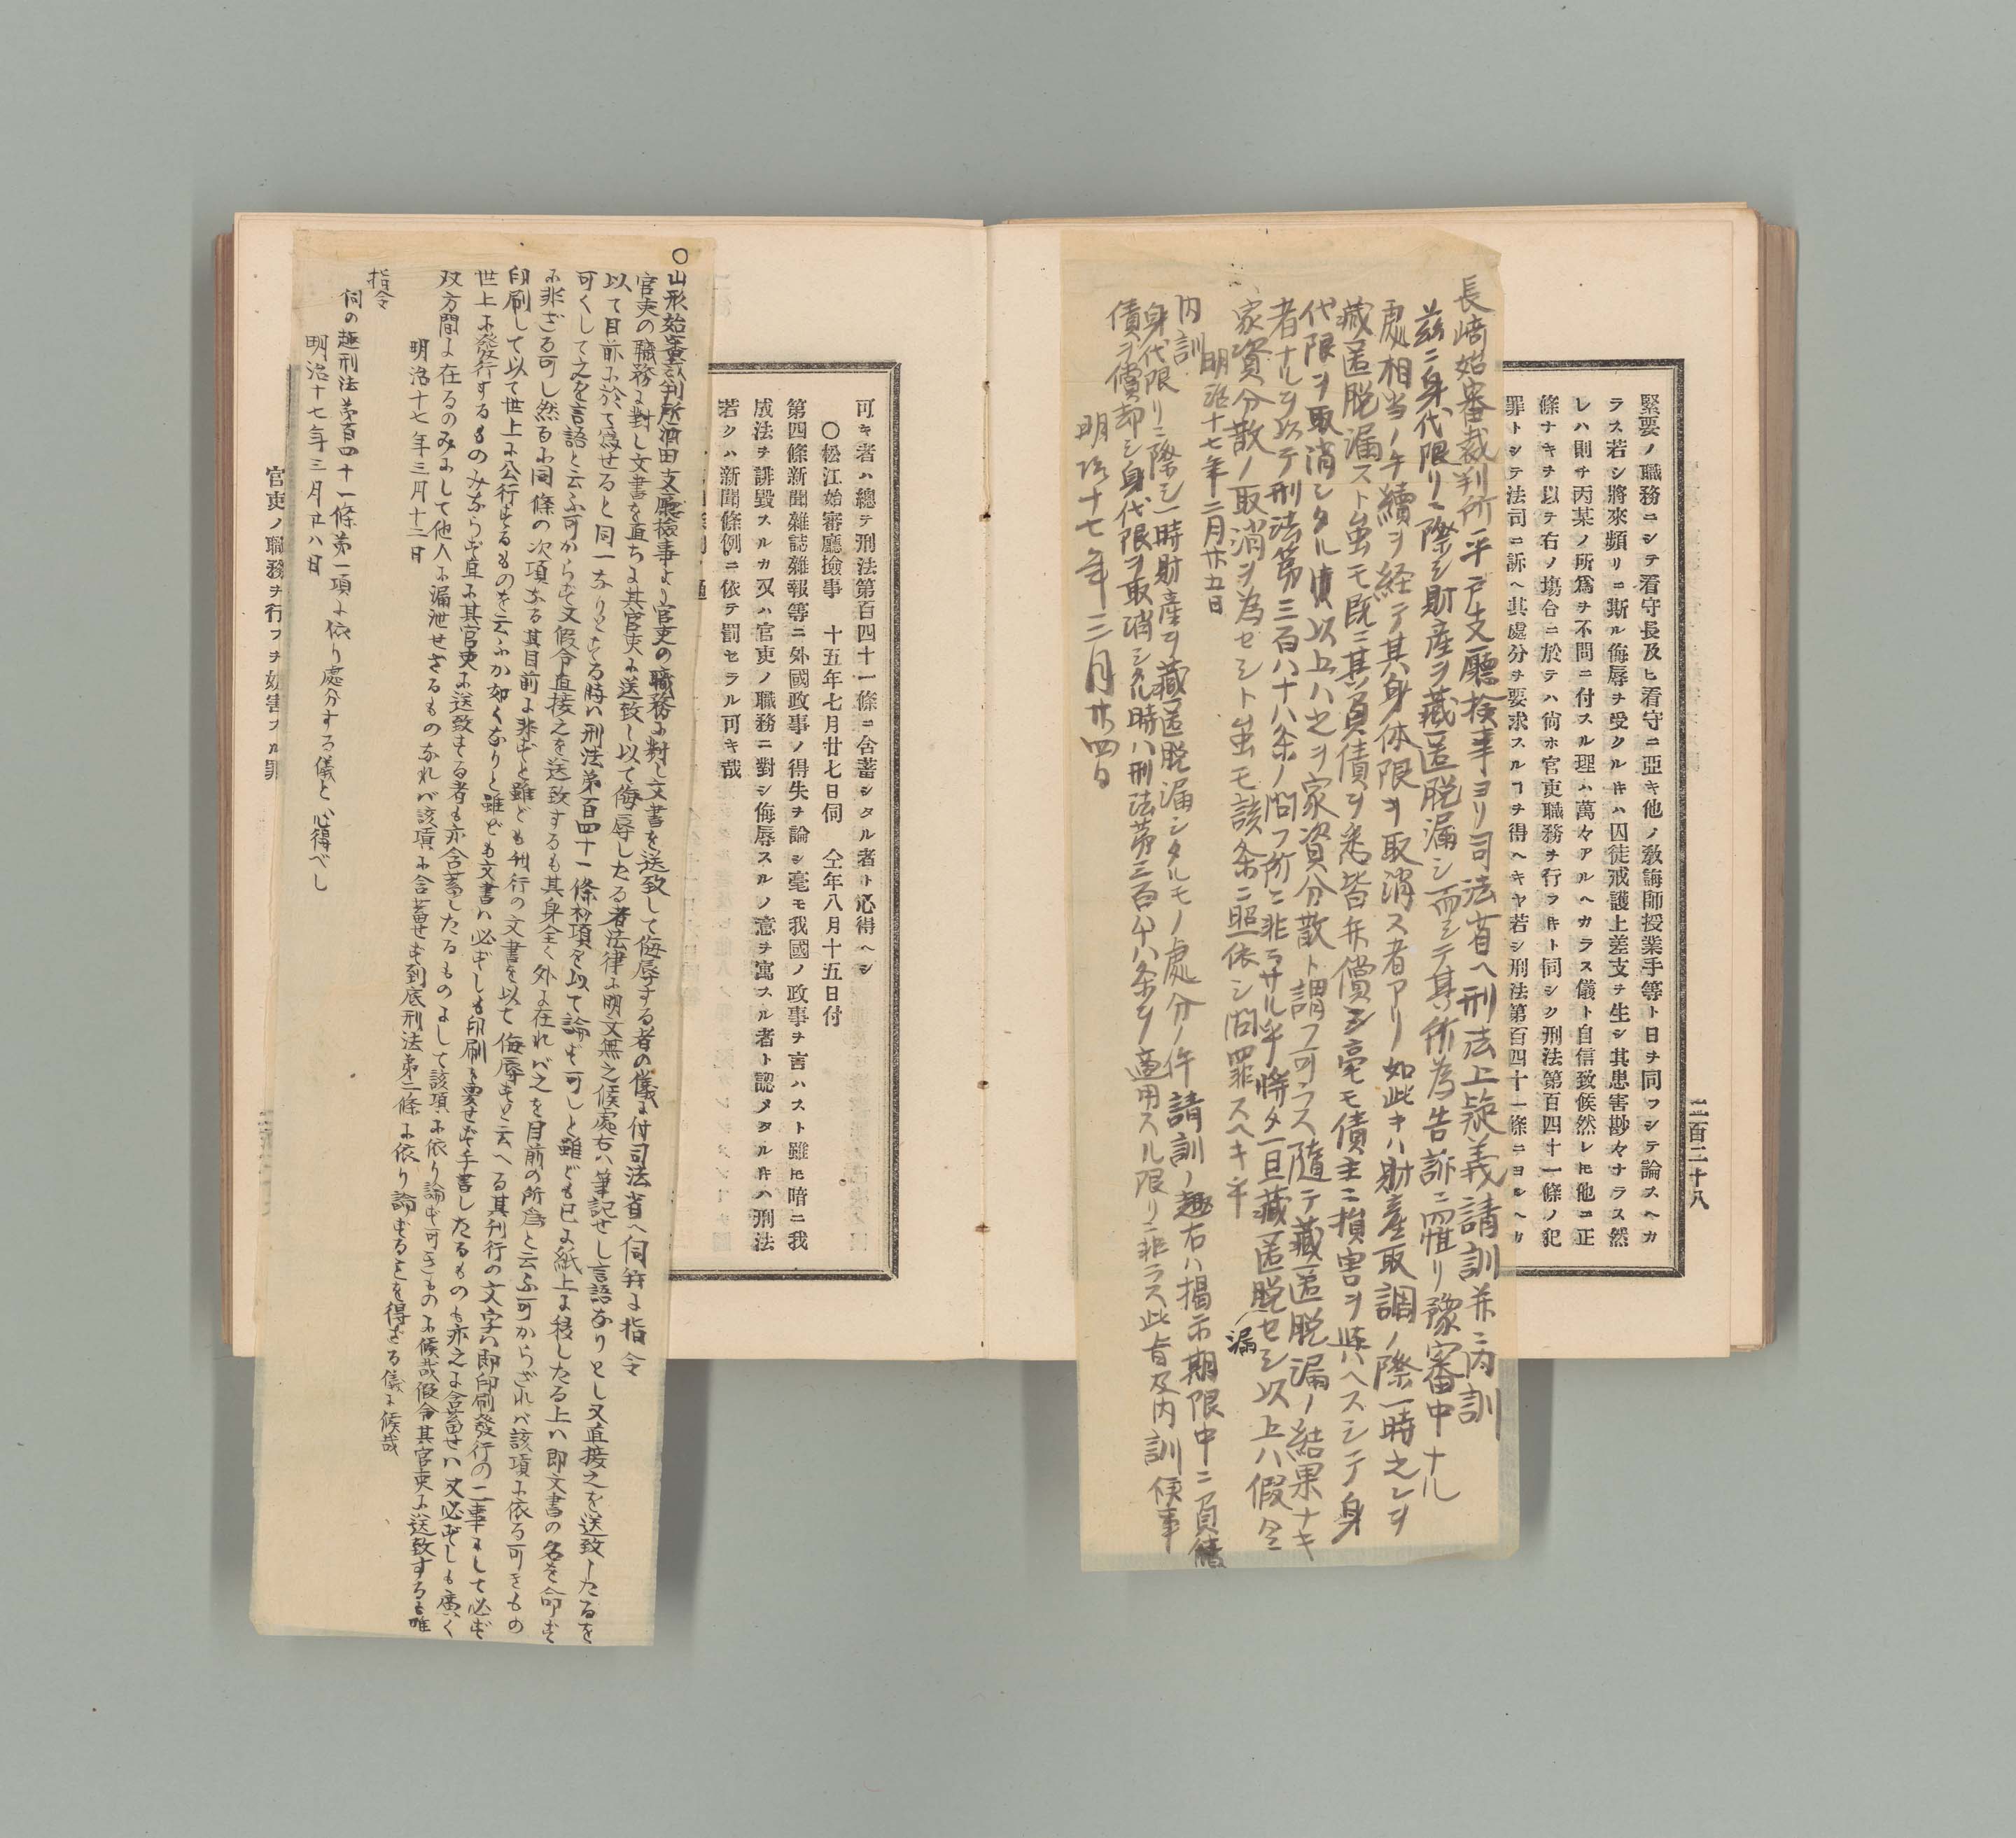 二百二十八
緊要ノ職務ニシテ看守長及ヒ看守ニ亞キ他ノ敎誨師授業手等ト日ヲ同フシテ論スヘカ
ラス若シ將來頻リニ斯ル侮辱ヲ受クルキハ囚徒戒護上差支ヲ生シ其患害尠々ナラス然
レハ則チ丙某ノ所爲ヲ不問ニ付スル理ハ萬々アルヘカラス儀ト自信致候然レ𪜈他ニ正
條ナキヲ以テ右ノ塲合ニ於テハ尙ホ官吏職務ヲ行フキト同シク刑法第百四十一條ノ犯
罪トシテ法司ニ訴ヘ其處分ヲ要求スルヿヲ得ヘキヤ若シ刑法第百四十一條ニヨルヘカ
長崎始審裁判所平戸支廳檢事ヨリ司法省ヘ刑法上疑義請訓并ニ内訓
茲ニ身代限リニ際シ財産ヲ藏匿脱漏シ而シテ其所為告訴ニ罹リ豫審中ナル
處相当ノ手續ヲ経テ其身体限ヲ取消ス者アリ如此キハ財産取調ノ際一時之レヲ
藏匿脱漏スト虽モ既ニ其負債ヲ悉皆弁償シ毫モ債主ニ損害ヲ與ヘスシテ身
代限ヲ取消シタル債以上ハ之ヲ家資分散ト謂フ可ラス隨テ藏匿脱漏ノ結果ナキ
者ナルヲ以テ刑法第三百八十八条ノ問フ所ニ非ラサル乎將タ一旦藏匿脱漏セシ以上ハ假令
家資分散ノ取消ヲ為セシト虽モ該条ニ照依シ問罪スヘキ乎
明治十七年二月廿五日
内訓
身代限リニ際シ一時財産ヲ藏匿脱漏シタルモノ處分ノ件請訓ノ趣右ハ揭示期限中ニ負債
債ヲ償却シ身代限ヲ取消シタル時ハ刑法第三百八十八条ヲ適用スル限リニ非ラス此旨及内訓候事
明治十七年三月廿四日
可キ者ハ總テ刑法第百四十一條ニ含蓄シタル者ト心得ヘシ
〇松江始審廳撿事 十五年七月廿七日伺 仝年八月十五日付
第四條新聞雜誌雜報等ニ外國政事ノ得失ヲ論シ毫モ我國ノ政事ヲ言ハスト雖𪜈暗ニ我
成法ヲ誹毀スルカ又ハ官吏ノ職務ニ對シ侮辱スルノ意ヲ寓スル者ト認メタルキハ刑法
若クハ新聞條例ニ依テ罰セラル可キ哉
〇山形始審裁判所酒田支廳檢事より官吏の職務に對し文書を送致して侮辱する者の儀に付司法省へ伺并に指令
官吏の職務に對し文書を直ちに其官吏に送致し以て侮辱したる者法律に明文無之候處右ハ筆記せし言語なりとし又直接之を送致したるを
以て目前に於て爲せると同一なりとする時ハ刑法第百四十一條初項を以て論ず可しと雖ども已に紙上に移したる上ハ即文書の名を命ず
可くして之を言語と云ふ可からず又假令直接之を送致するも其身全く外に在れバ之を目前の所爲と云ふ可からざれバ該項に依る可きもの
に非ざる可し然るに同條の次項なる其目前に非ずと雖ども刊行の文書を以て侮辱すと云へる其刊行の文字ハ即印刷發行の二事にして必ず
印刷して以て世上に公行するものを云ふか如くなりと雖ども文書ハ必ずしも印刷を要せず手書したるものも亦之に含蓄せハ又必ずしも廣く
世上に發行するもののみならず直に其官吏に送致する者も亦含蓄したるものにして該項に依り論ず可きものに候哉假令其官吏に送致するも唯
双方間に在るのみにして他人に漏泄せざるものなれバ該項に含蓄せず到底刑法第二條に依り論ずるを得ざる儀に候哉
明治十七年三月十二日
指令
伺の趣刑法第百四十一條第一項に依り處分する儀と心得べし
明治十七年三月廿八日
官吏ノ職務ヲ行フヲ妨害スル罪